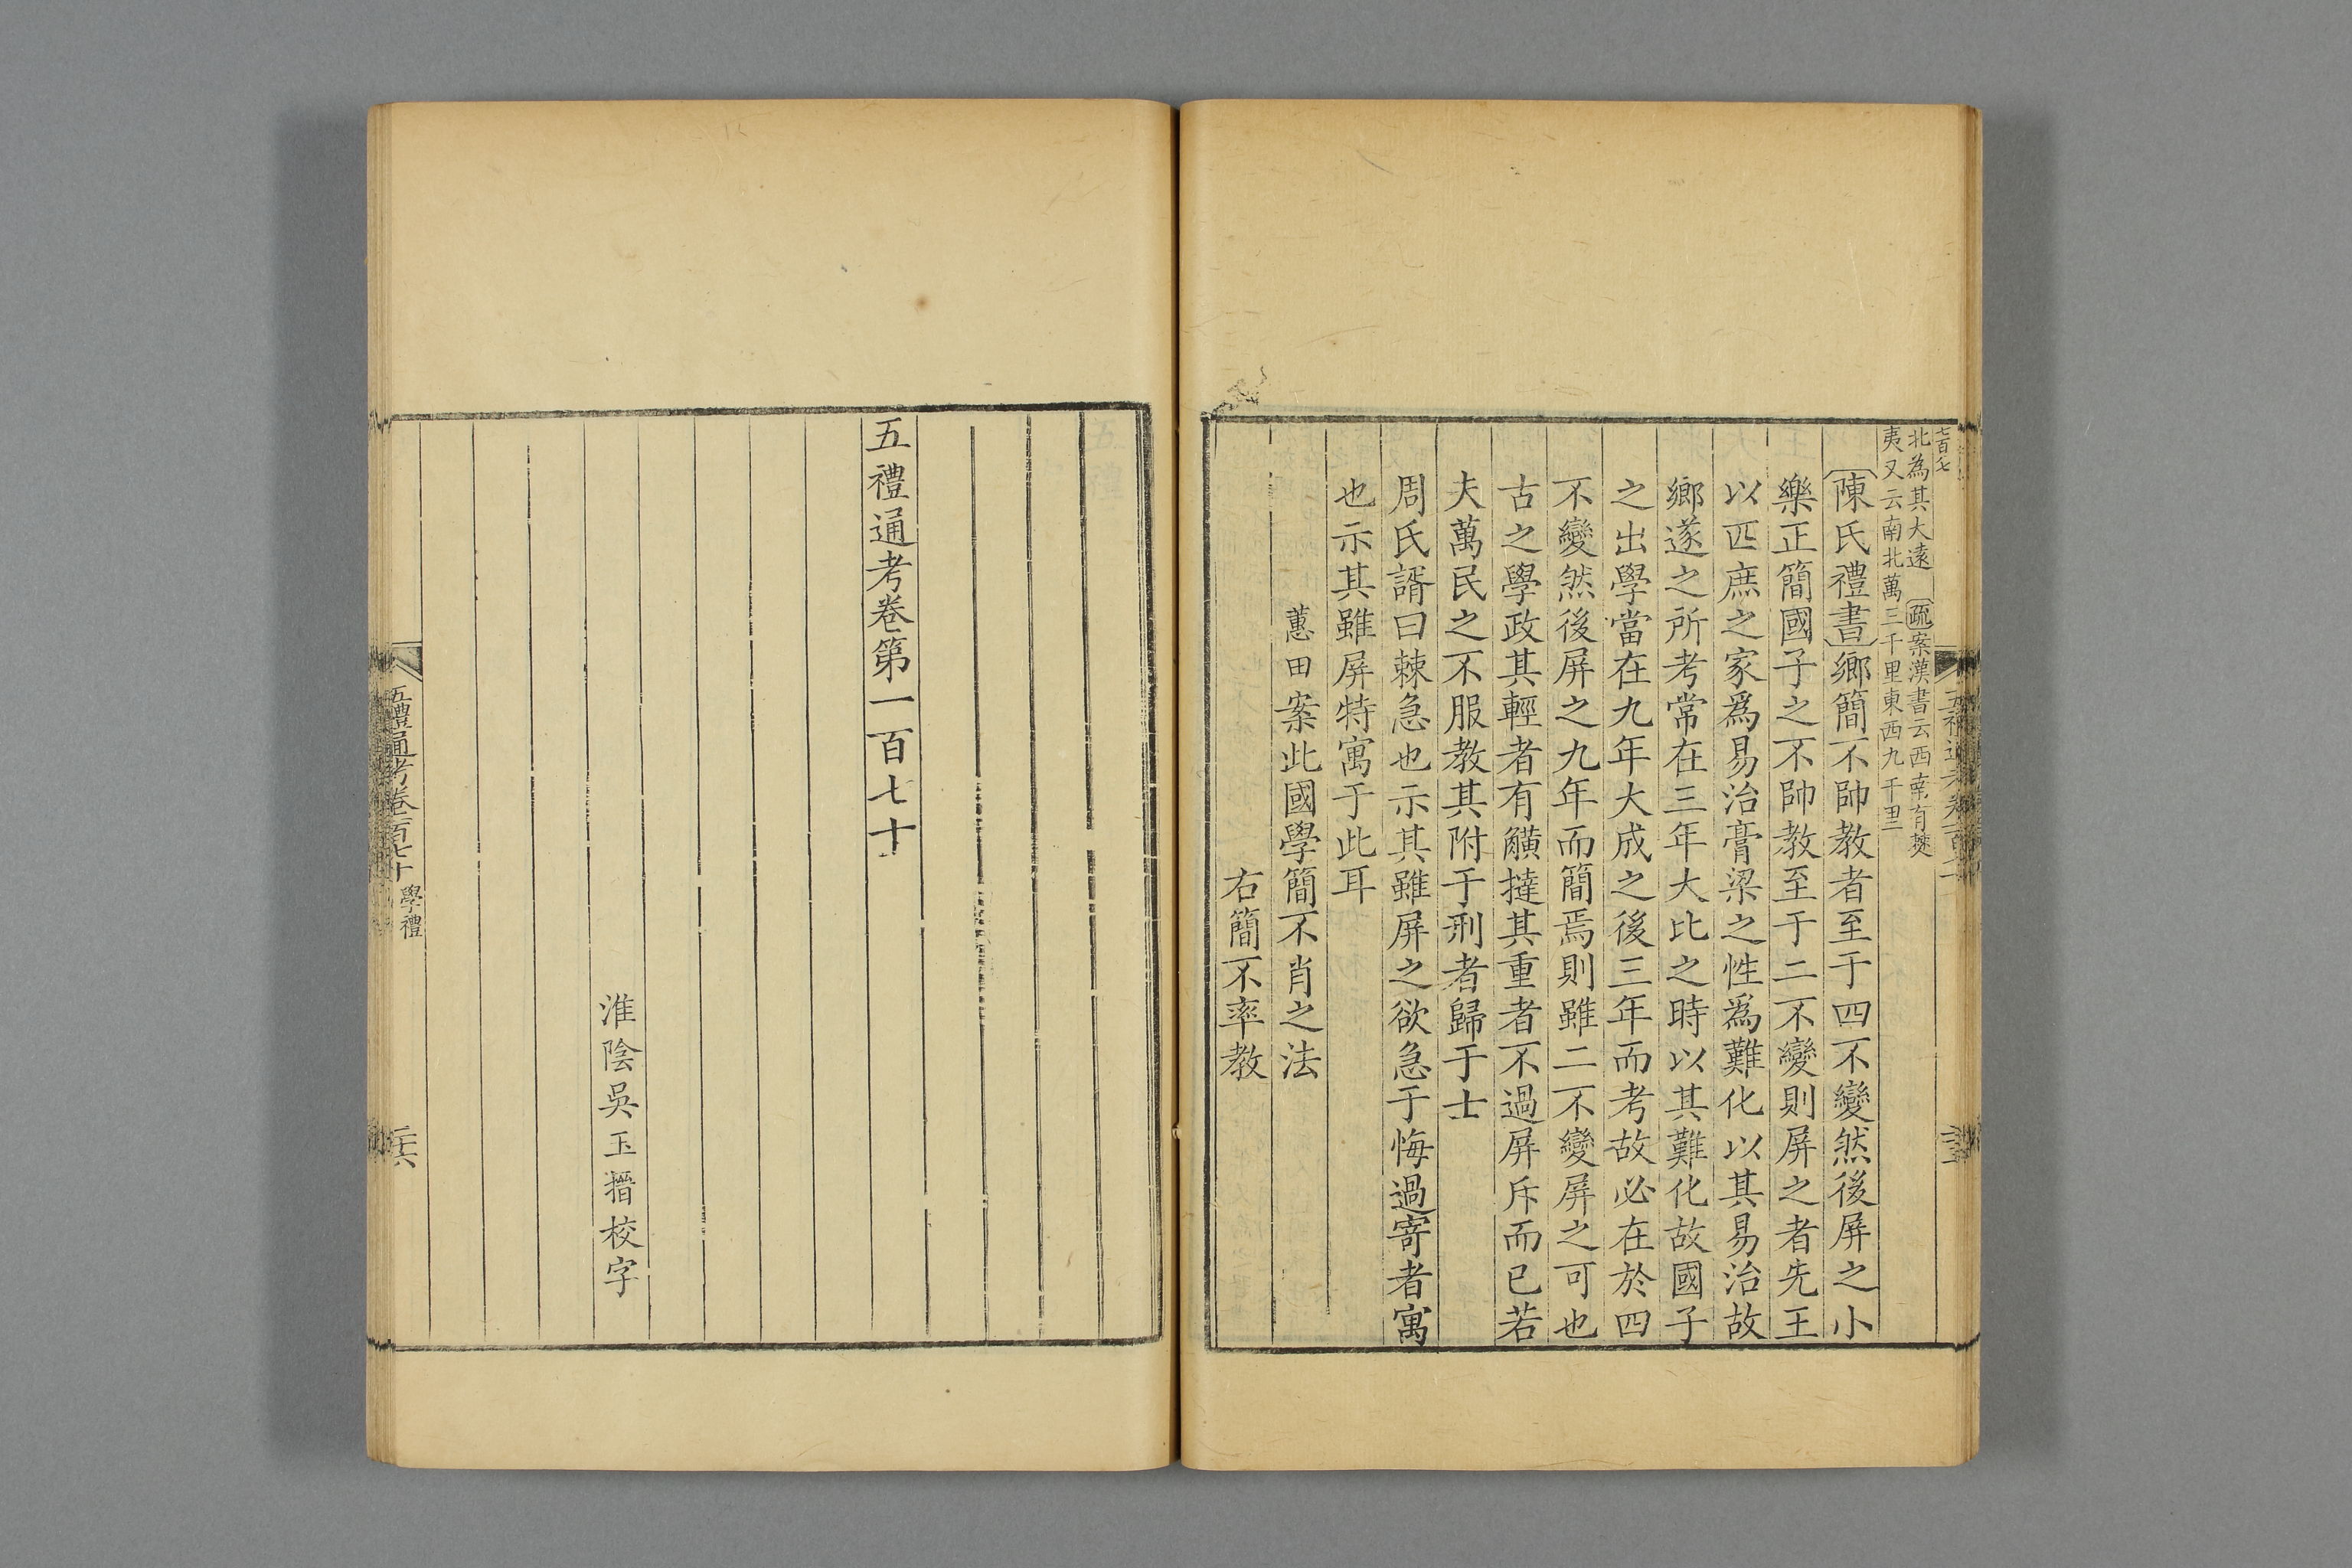 北為其大遠　疏案漢書云西南有僰
夷又云南北萬三千里東西九千里
陳氏禮書鄉簡不帥教者至于四不變然後屏之小
樂正簡國子之不帥教至于二不變則屏之者先王
以匹庶之家爲易治膏粱之性爲難化以其易治故
鄉遂之所考常在三年大比之時以其難化故國子
之出學當在九年大成之後三年而考故必在於四
不變然後屏之九年而簡焉則雖二不變屏之可也
古之學政其輕者有觵撻其重者不過屏斥而已若
夫萬民之不服教其附于刑者歸于士
周氏諝曰棘急也示其雖屏之欲急于悔過寄者寓
也示其雖屏特寓于此耳
蕙田案此國學簡不肖之法
右簡不率教
五禮通考卷第一百七十
淮陰吳玉搢校字
五禮通考卷一百七十　學禮